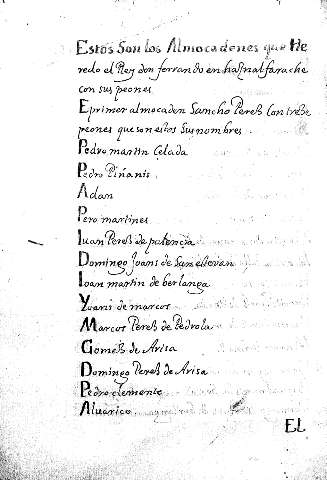 Estos Son los Almocadenes que He
redo el Rey don ferrando en haſnalfarache
con sus peones
E primer almocaden Sancho Pereß Con treße
peones que son estos Sus nombres.
Pedro martin Çelada
Pedro Piñanis.
Adan
Pero martines
Iuan Pereß de palencia
Domingo Joanis de San esteuan
Ioan martin de berlanga
Yuanis de marcos
Marcos Pereß de Pedrola
Gomeß de Arisa
Domingo Pereß de Arisa
Pedro clemente
Aluarico
EL